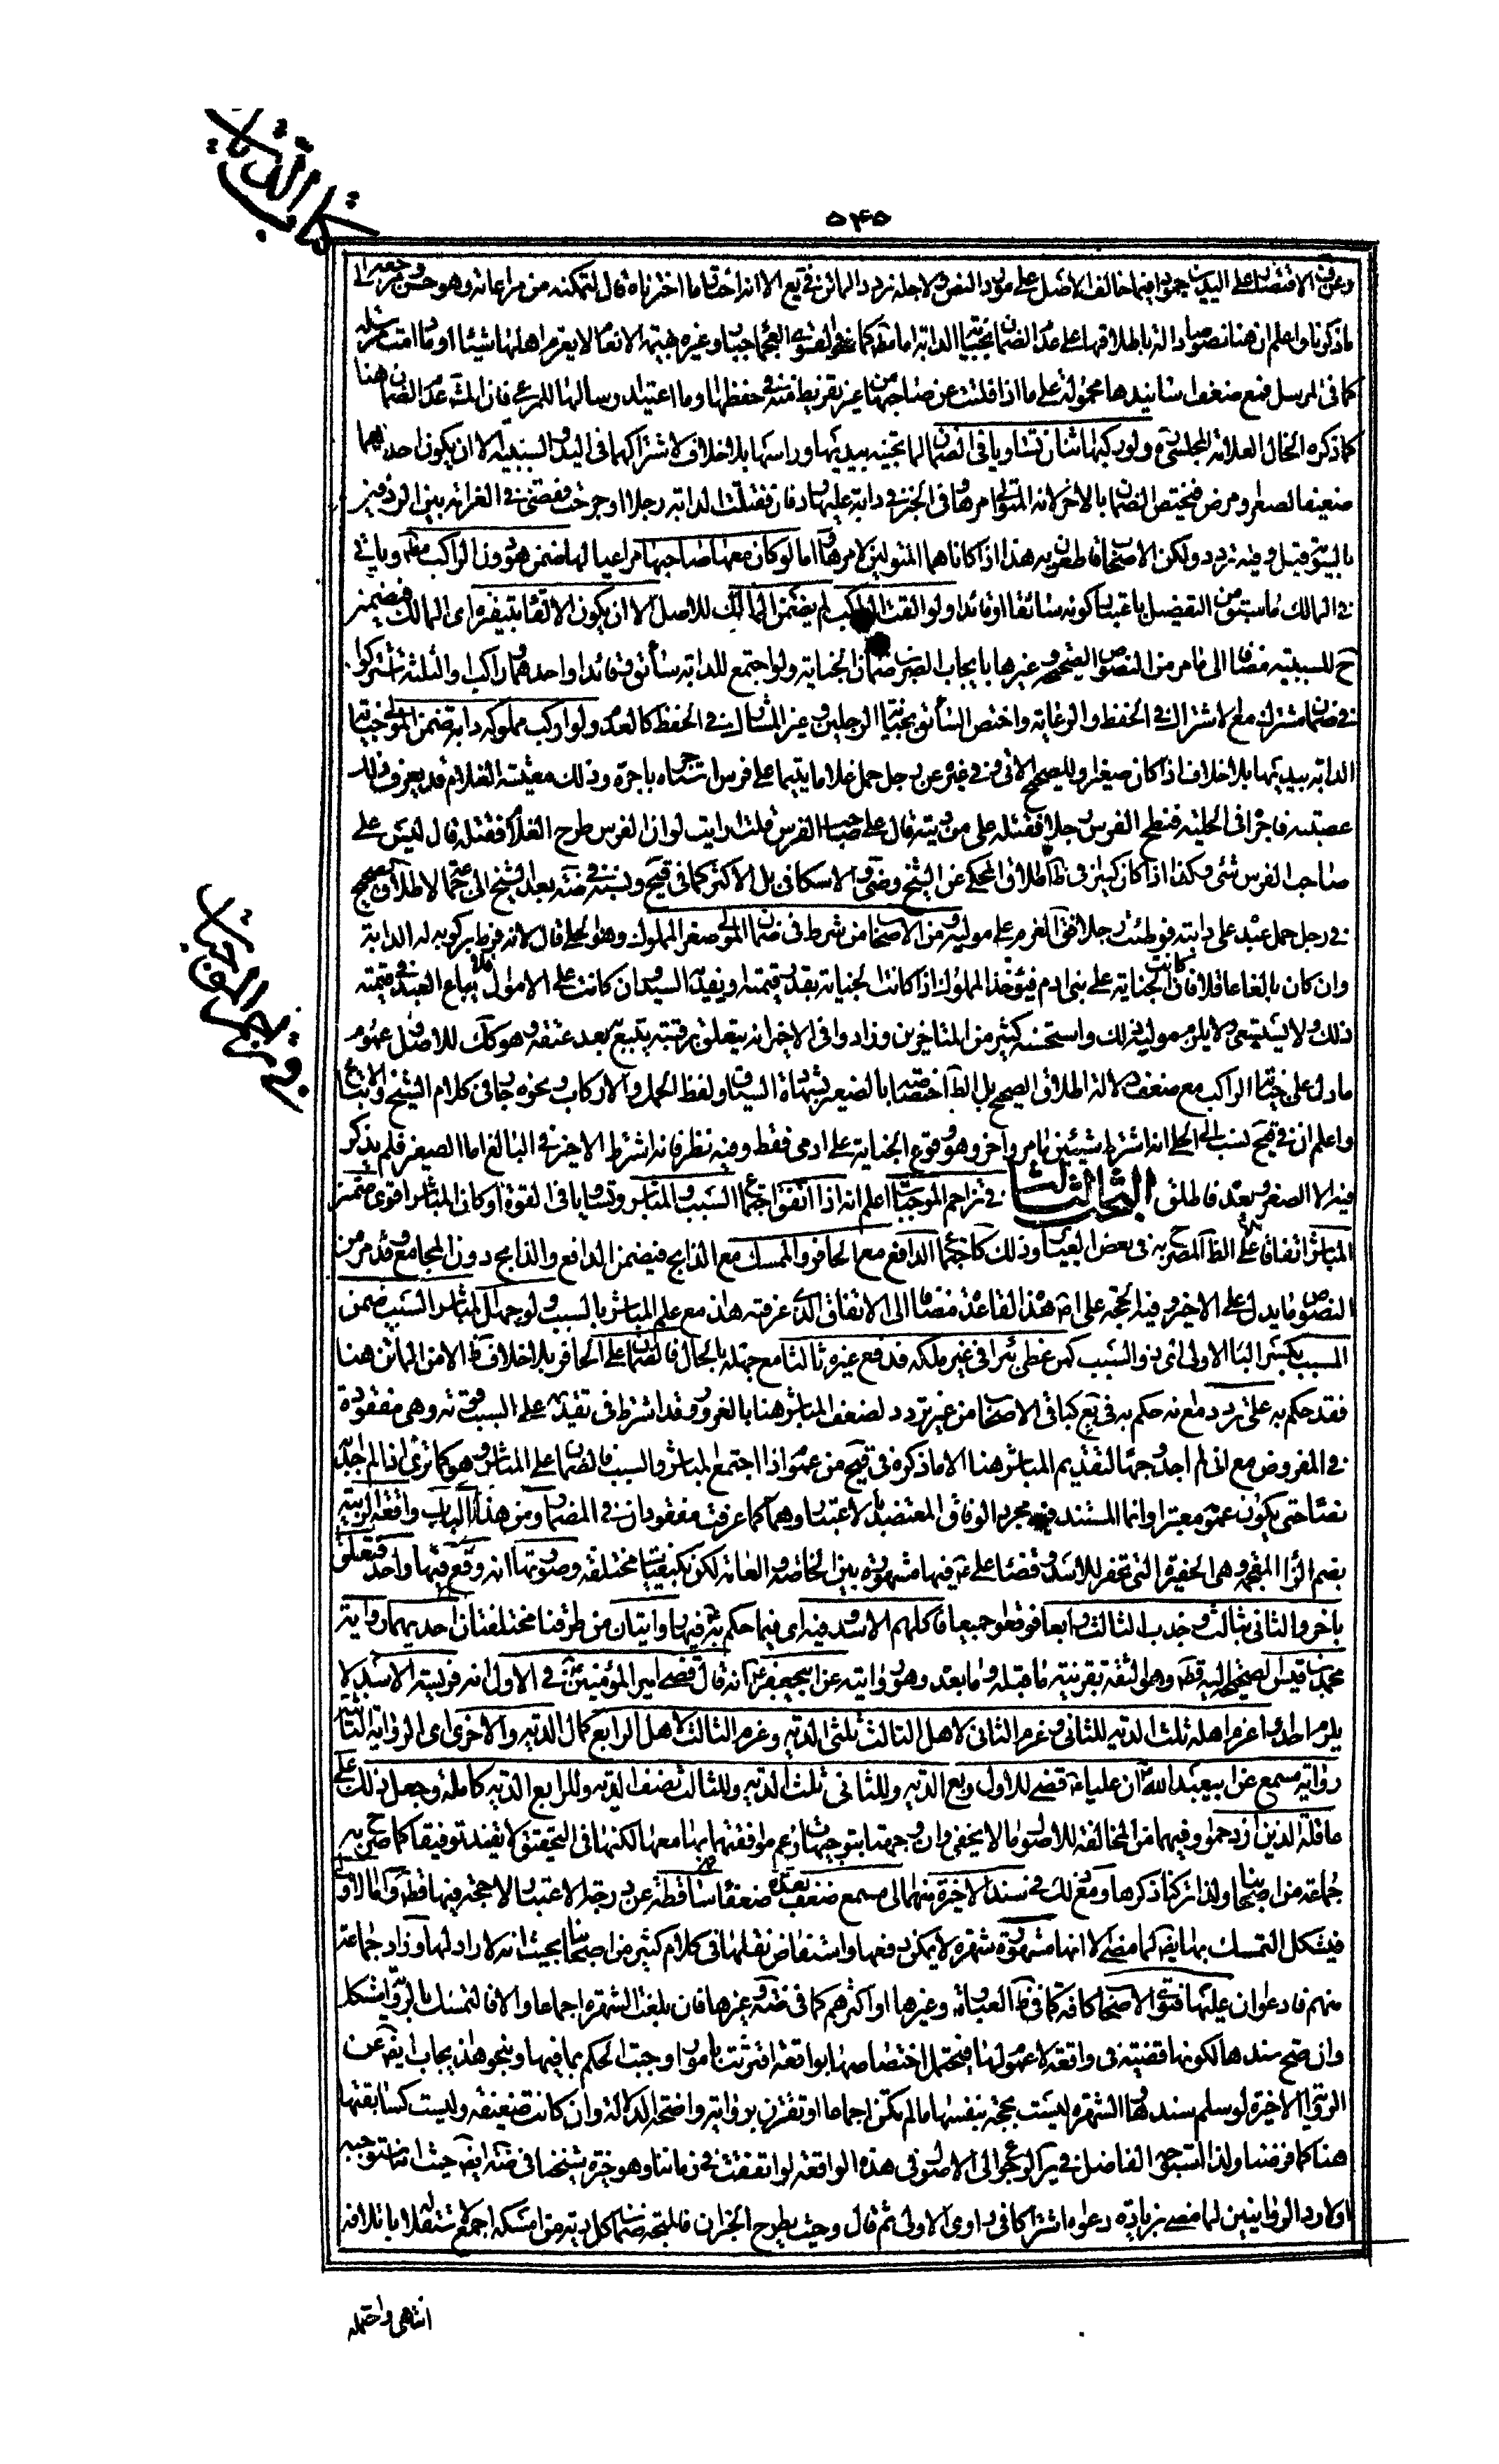 كتاب الديات
٥٤٥
ماذكرنا واعلم ان هنا نصوصا دالة باطلاقها على عدم الضمان بجناية الدابة امامه كما
كما في المرسل فمع ضعف اسانيدها محمولة على ما اذا فلتت عن صاحبها من غير تفريط منه في حفظها وما اعتيد ارسالها للمرعى فان الثمة عدم الضمان هنا
كما ذكره الخال العلامة المجلسي ره ولو ركبها اثنان تساويا في الضمان لما تجنيه بيديها وراسها بلا خلاف لاشتراكهما في اليد والسببية الا ان يكون احدهما
ضعيفا لصغر او مرض فيختص الضمان بالاخر لانه المتولى امرها وفي الخبر في دابة عليها ردفان فقتلت الدابة رجلا او جرحت فقضى في الغرامة بين الردفين
بالسوية قيل وفيه تردد ولكن الاصحاب قاطعون به هذا اذا كانا هما المتوليين لامرها اما لو كان معها صاحبها مراعيا لها ضمن هو دون الراكب وياتي
في المالك ما سبق من التفصيل باعتبار كونه سائقا او قائدا ولو القت الراكب لم يضمن المالك للاصل الا ان يكون الالقاء بتنفيره اى المالك فيضمن
ح للسببية مضافا الى ما مر من النصوص الصحيحة وغيرها بايجاب الضرب ضمان الجناية ولو اجتمع للدابة سائق وقائد او احدهما وراكب او الثلثة اشتركوا
في ضمان مشترك مع الاشتراك في الحفظ والرعاية واختص السائق بجناية الرجلين وغير المشارك في الحفظ كالعدم ولو اركب مملوكه دابة ضمن المولى جناية
الدابة بيديها بلا خلاف اذا كان صغيرا وللصحيح الاتي وفي غيره عن رجل حمل غلاما يتيما على فرس استاجره باجرة وذلك معيشة الغلام قد يعرف ذلك
عصبته فاجراه في الحلبة فنطح الفرس رجلا فقتله على من ديته قال على صاحب الفرس قلت ارايت لو ان الفرس طرح الغلام فقتله قال ليس على
صاحب الفرس شئ وكذا اذا كان كبيرا في اطلاق المحكى عن الشيخ وضى والاسكافي بل الاكثر كما في
في رجل حمل عبده على دابته فوطئت رجلا فقال الغرم على مولاه ومن الاصحاب من شرط في ضمان المولى صغر المملوك وهو الحلى قال لانه فرط بركوبه له الدابة
وان كان بالغا عاقلا فان كانت الجناية على بني ادم فيؤخذ المملوك اذا كانت الجناية بقدر قيمته او يفديه السيد وان كانت على الاموال فلا يباع العبد في قيمة
ذلك ولا يستسعى ولا يلزم مولاه ذلك واستحسنه كثير من المتاخرين وزادوا في الاخير انه يتعلق برقبته يتبع به بعد عتقه وهو كك للاصل وعموم
مادل على جناية الراكب مع ضعف دلالة اطلاق الصحيح بل الظ اختصاصه بالصغير بشهادة السياق ولفظ الحمل والاركاب ونحوه جار في كلام الشيخ والاتباع
واعلم ان في نسب الى الحلى انه اشترط شيئين ما مر واخر وهو وقوع الجناية على ادمى فقط وفيه نظر فانه اشترط الاخير في البالغ اما الصغير فلم يذكر
فيه الا الصغر وبعده فاطلق البحث الثالث في تزاحم الموجبات اعلم انه اذا اتفق اجتماع السبب والمباشر وتساويا في القوة او كان المباشر اقوى ضمن
المباشر اتفاقا على الظ المصرح به في بعض العبارات وذلك كاجتماع الدافع مع الحافر والممسك مع الذابح فيضمن الدافع والذابح دون المجامع وقد مر من
النصوص ما يدل على الاخير وفيه الحجة على اصل هذه القاعدة مضافا الى الاتفاق الذى عرفته هذا مع علم المباشر بالسبب ولو جهل المباشر السبب ضمن
المسبب بكسر الباء الاولى اى ذو السبب كمن غطى بئرا في غير ملكه فدفع غيره ثالثا مع جهله بالحال فالضمان على الحافر بلا خلاف الا من الماتن هنا
فقد حكم به على تردد مع انه حكم به في كباقي الاصحاب من غير تردد لضعف المباشر هنا بالغرور وقد اشترط في تقديمه على السبب قوته وهى مفقودة
في المفروض مع انى لم اجد وجها لتقديم المباشر هنا الا ما ذكره في من عموم اذا اجتمع المباشر والسبب فالضمان على المباشر وهو كما ترى اذ لم اجد به
نصا حتى يكون عمومه معتبرا وانما المستند فيه مجرد الوفاق المعتضد بالاعتبار وهما كما عرفت مفقودان في المضمار ومن هذا الباب واقعة الزبية
بضم الزاء المعجمة وهى الحفيرة التى تحفر للاسد وقضاء على ع فيها مشهورة بين الخاصة والعامة لكن بكيفيات مختلفة وصورتها انه وقع فيها واحد فتعلق
باخر والثاني بثالث وجذب الثالث رابعا فوقعوا جميعا فاكلهم الاسد وفيه اى فيما حكم به فيها روايتان من طرقنا مختلفتان احديهما رواية
محمد بن قيس الصحيحة اليه قطعا وهو الثقة بقرينة ما قبله وما بعده وهو روايته عن ابيجعفر ع انه قال قضى امير المؤمنين ع في الاول انه فريسة الاسد لا
يلزم احدا وغرم اهله ثلث الدية للثاني وغرم الثاني لاهل الثالث ثلثى الدية وغرم الثالث لاهل الرابع كمال الدية والاخرى اى الرواية الثانية
رواية مسمع عن ابيعبد الله ع ان عليا ع قضى للاول ربع الدية وللثاني ثلث الدية وللثالث نصف الدية وللرابع الدية كاملة وجعل ذلك على
عاقلة الذين ازدحموا وفيهما من المخالفة للاصول ما لا يخفى وان وجهتا بتوجيهات زعم موافقتهما بها معها لكنها في التحقيق لا تفيد توفيقا كما صرح به
جماعة من اصحابنا ولذا تركنا ذكرها ومع ذلك في سند الاخيرة منهما الى مسمع ضعف بعده ضعفا ساقطة عن درجة الاعتبار لا حجة فيها قطعا واما الاولى
فيشكل التمسك بها ايضا لما مضى الا انها مشهورة شهرة لا يمكن دفعها واستفاض نقلها في كلام كثير من اصحابنا بحيث انه لا راد لها وزاد جماعة
منهم فادعوا ان عليها فتوى الاصحاب كافة كما في ظ العبارة وغيرها او اكثرهم كما في ضه وغيرها فان بلغت الشهرة اجماعا والا فالتمسك بالرواية مشكل
وان صح سندها لكونها قضية في واقعة لا عموم لها فيحتمل اختصاصها بواقعة اقترنت بامور اوجبت الحكم بما فيها وبنحو هذا يجاب ايضا عن
الرواية الاخيرة لو سلم سندها والشهرة ليست بحجة بنفسها ما لم تكن اجماعا او تقترن برواية واضحة الدلالة وان كانت ضعيفة وليست كسابقتها
هنا كما فرضنا ولذا استوجه الفاضل في ير الرجوع الى الاصول في هذه الواقعة لو اتفقت في زماننا وهو خيرة شيخنا في ضه ايضا حيث انه بعد توجيه
انتهى واحتمله